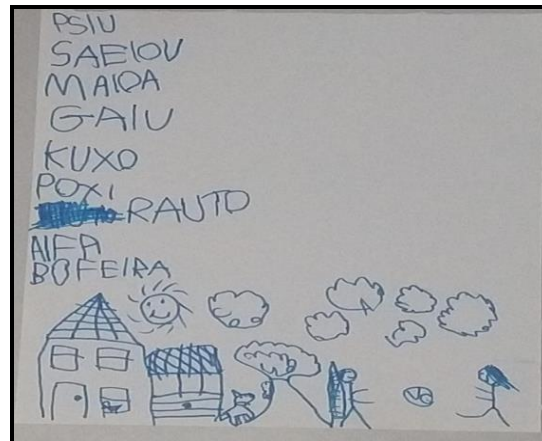 PSIU
SAEIOU
MAIOA
GAIU
KUXO
POXI
RAUTO
AIFA
BOFEIRA